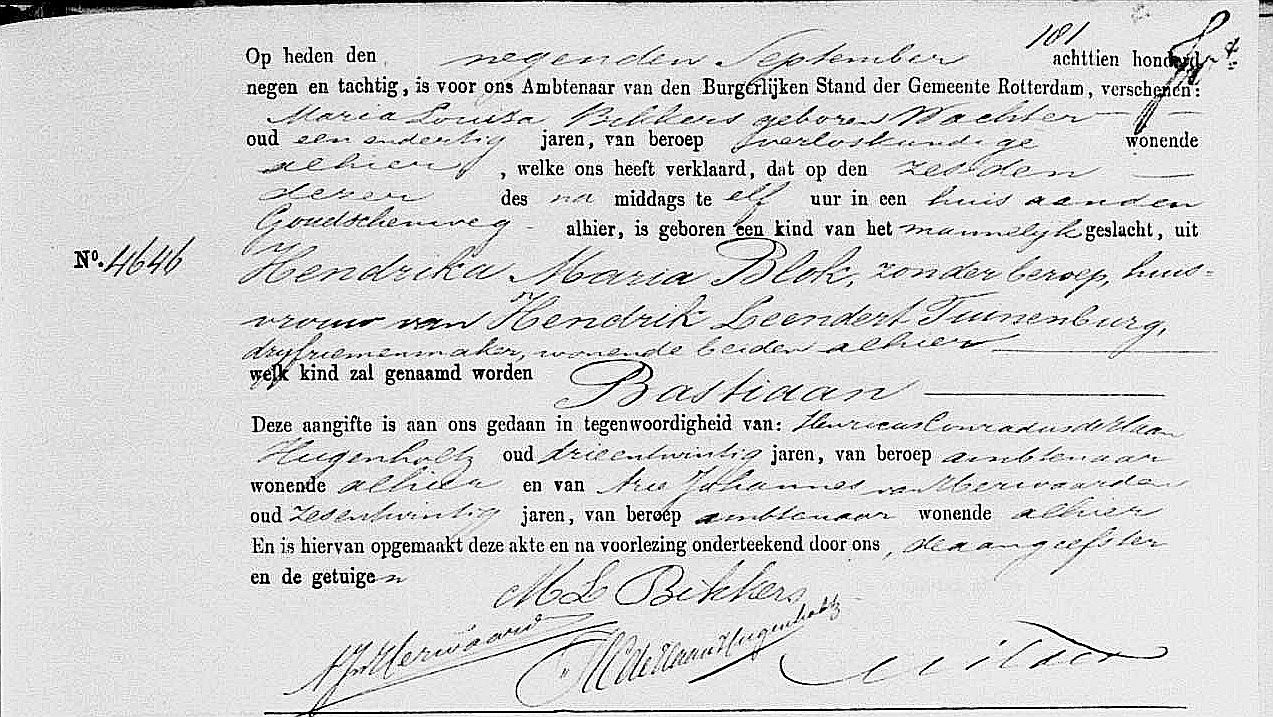 181
Op heden den negenden September achttien honderd
negen en tachtig, is voor ons Ambtenaar van den Burgerlijken Stand der Gemeente Rotterdam, verschenen:
Maria Louisa Bikkers geboren Wachter
oud een en dertig jaren, van beroep verloskundige wonende
alhier, welke ons heeft verklaard, dat op den zesden
dezer des na middags te elf uur in een huis aan den
Goudschenweg alhier, is geboren een kind van het mannelijk geslacht, uit
No. 4646
Hendrika Maria Blok, zonder beroep, huis-
vrouw van Hendrik Leendert Tuinenburg,
wonende beiden alhier
welk kind zal genaamd worden Bastiaan
Deze aangifte is aan ons gedaan in tegenwoordigheid van: Henricus Conradus de Haan
Hugenholtz oud drieentwintig jaren, van beroep ambtenaar
wonende alhier en van Arie Johannes van Herwaarden
oud zesentwintig jaren, van beroep ambtenaar wonende alhier
En is hiervan opgemaakt deze akte en na voorlezing onderteekend door ons, de aangeefster
en de getuigen
M L Bikkers
AJvHerwaarde
HC de Haan Hugenholtz